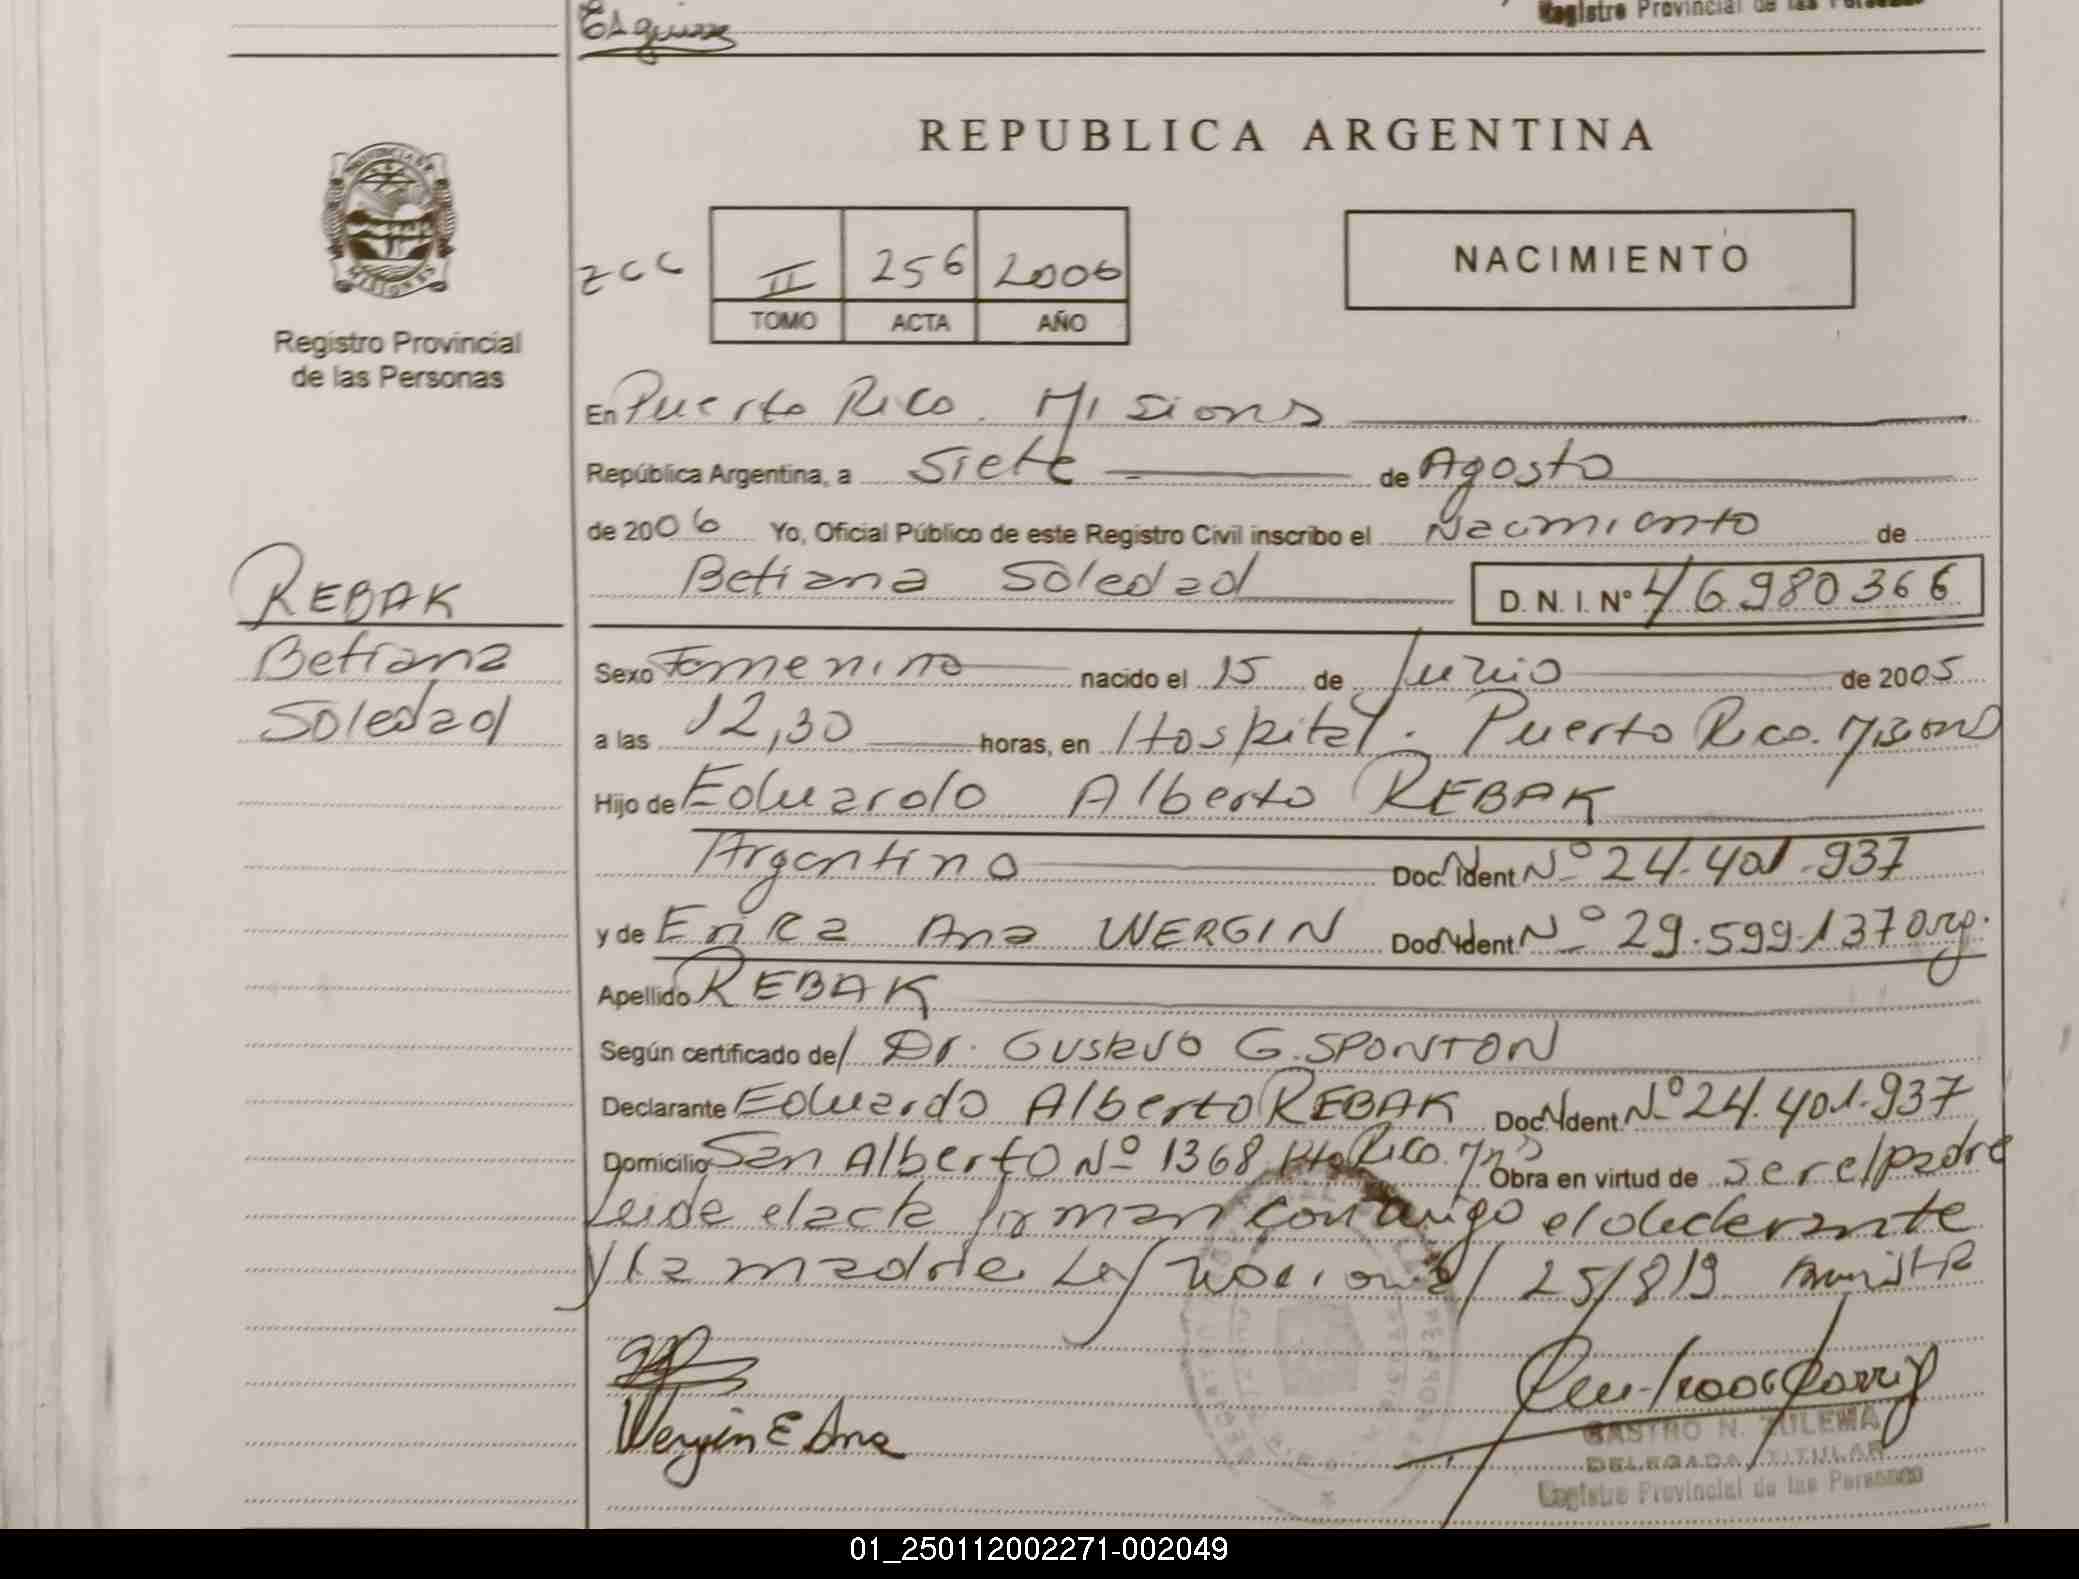 Esquina
Registro Provincial de las Personas
REPUBLICA ARGENTINA
PROVINCIA DE
MISIONES
Registro Provincial
de las Personas
II 256 2006
TOMO ACTA AÑO
NACIMIENTO
En Puerto Rico. Misiones
República Argentina, a Siete de Agosto
de 2006 Yo, Oficial Público de este Registro Civil inscribo el Nacimiento de
Betiana Soledad D.N.I. Nº 46980366
REBAK
Betiana
Soledad
Sexo Femenino nacido el 15 de Junio de 2005
a las 12,30 horas, en Hospital. Puerto Rico. Misiones
Hijo de Eduardo Alberto REBAK
Argentino Doc. Ident Nº 24.401.937
y de Erica Ana WERGIN Doc. Ident Nº 29.599.137 arg.
Apellido REBAK
Según certificado del Dr. Gustavo G. SPONTON
Declarante Eduardo Alberto REBAK Doc. Ident Nº 24.401.937
Domicilio San Alberto Nº 1368 Pto Rico. Mns Obra en virtud de ser el padre
Leida el acta firman conmigo el declarante
y la madre. Ley Nacional 25/819
Wergin E Ana
CASTRO N. ZULEMA
DELEGADA TITULAR
Registro Provincial de las Personas
01_250112002271-002049